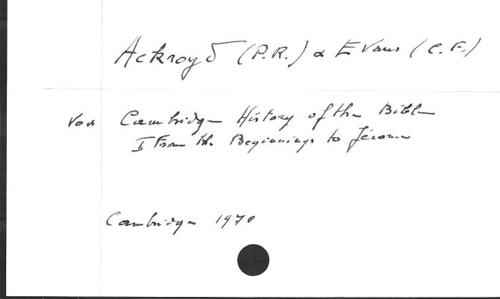 Ackroyd (P.R.) & Evans (C.F.)
Voir Cambridge History of the Bible
I From the Beginnings to Jérome
Cambridge 1970